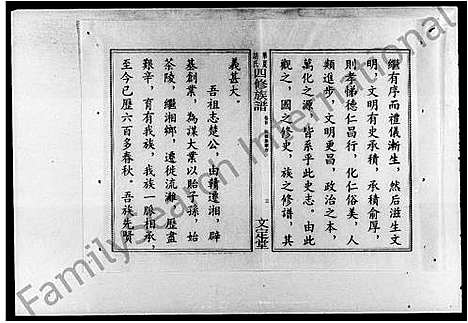 繼有序而禮儀漸生，然後滋生文
明，文明有史承積，承積俞厚，
則孝悌德仁昌行，化仁俗美，人
類進步，文明更昌，政治之本，
萬化之源，皆系乎此史志。由此
觀之，國之修史，族之修譜，其
四修族譜
文定堂
義甚大。
吾祖志楚公，由贛遷湘，辟
基創業，為謀大業以貽子孫，始
茶陵，繼湘鄉，遷徙流離，歷盡
艱辛，育有我族，我族一脈相承，
至今已歷六百多春秋。吾族先賢
Family Search International